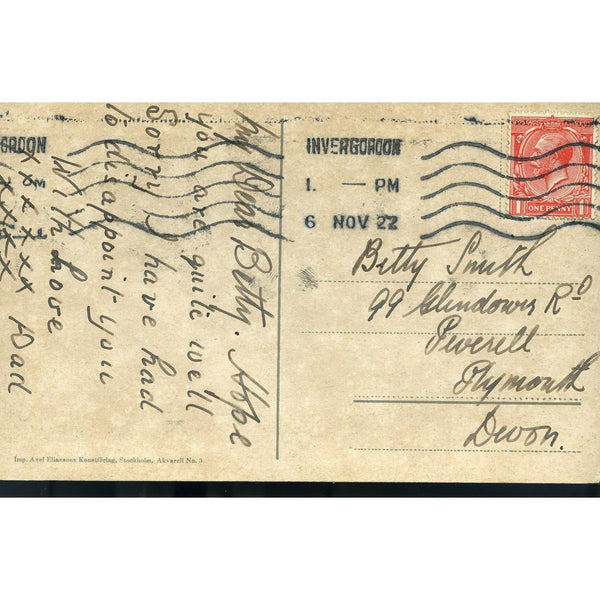 My Dear Betty. Hope
you are quite well
Sorry I have had
to disappoint you
With love
xxxxxx Dad
xxxxx
GORDON
INVERGORDON
1. — PM
6 NOV 22
ONE PENNY
Betty Smith
99 Glendower Rd
Peverell
Plymouth
Devon.
Imp. Axel Eliassons Konstförlag, Stockholm, Akvarell No. 3.